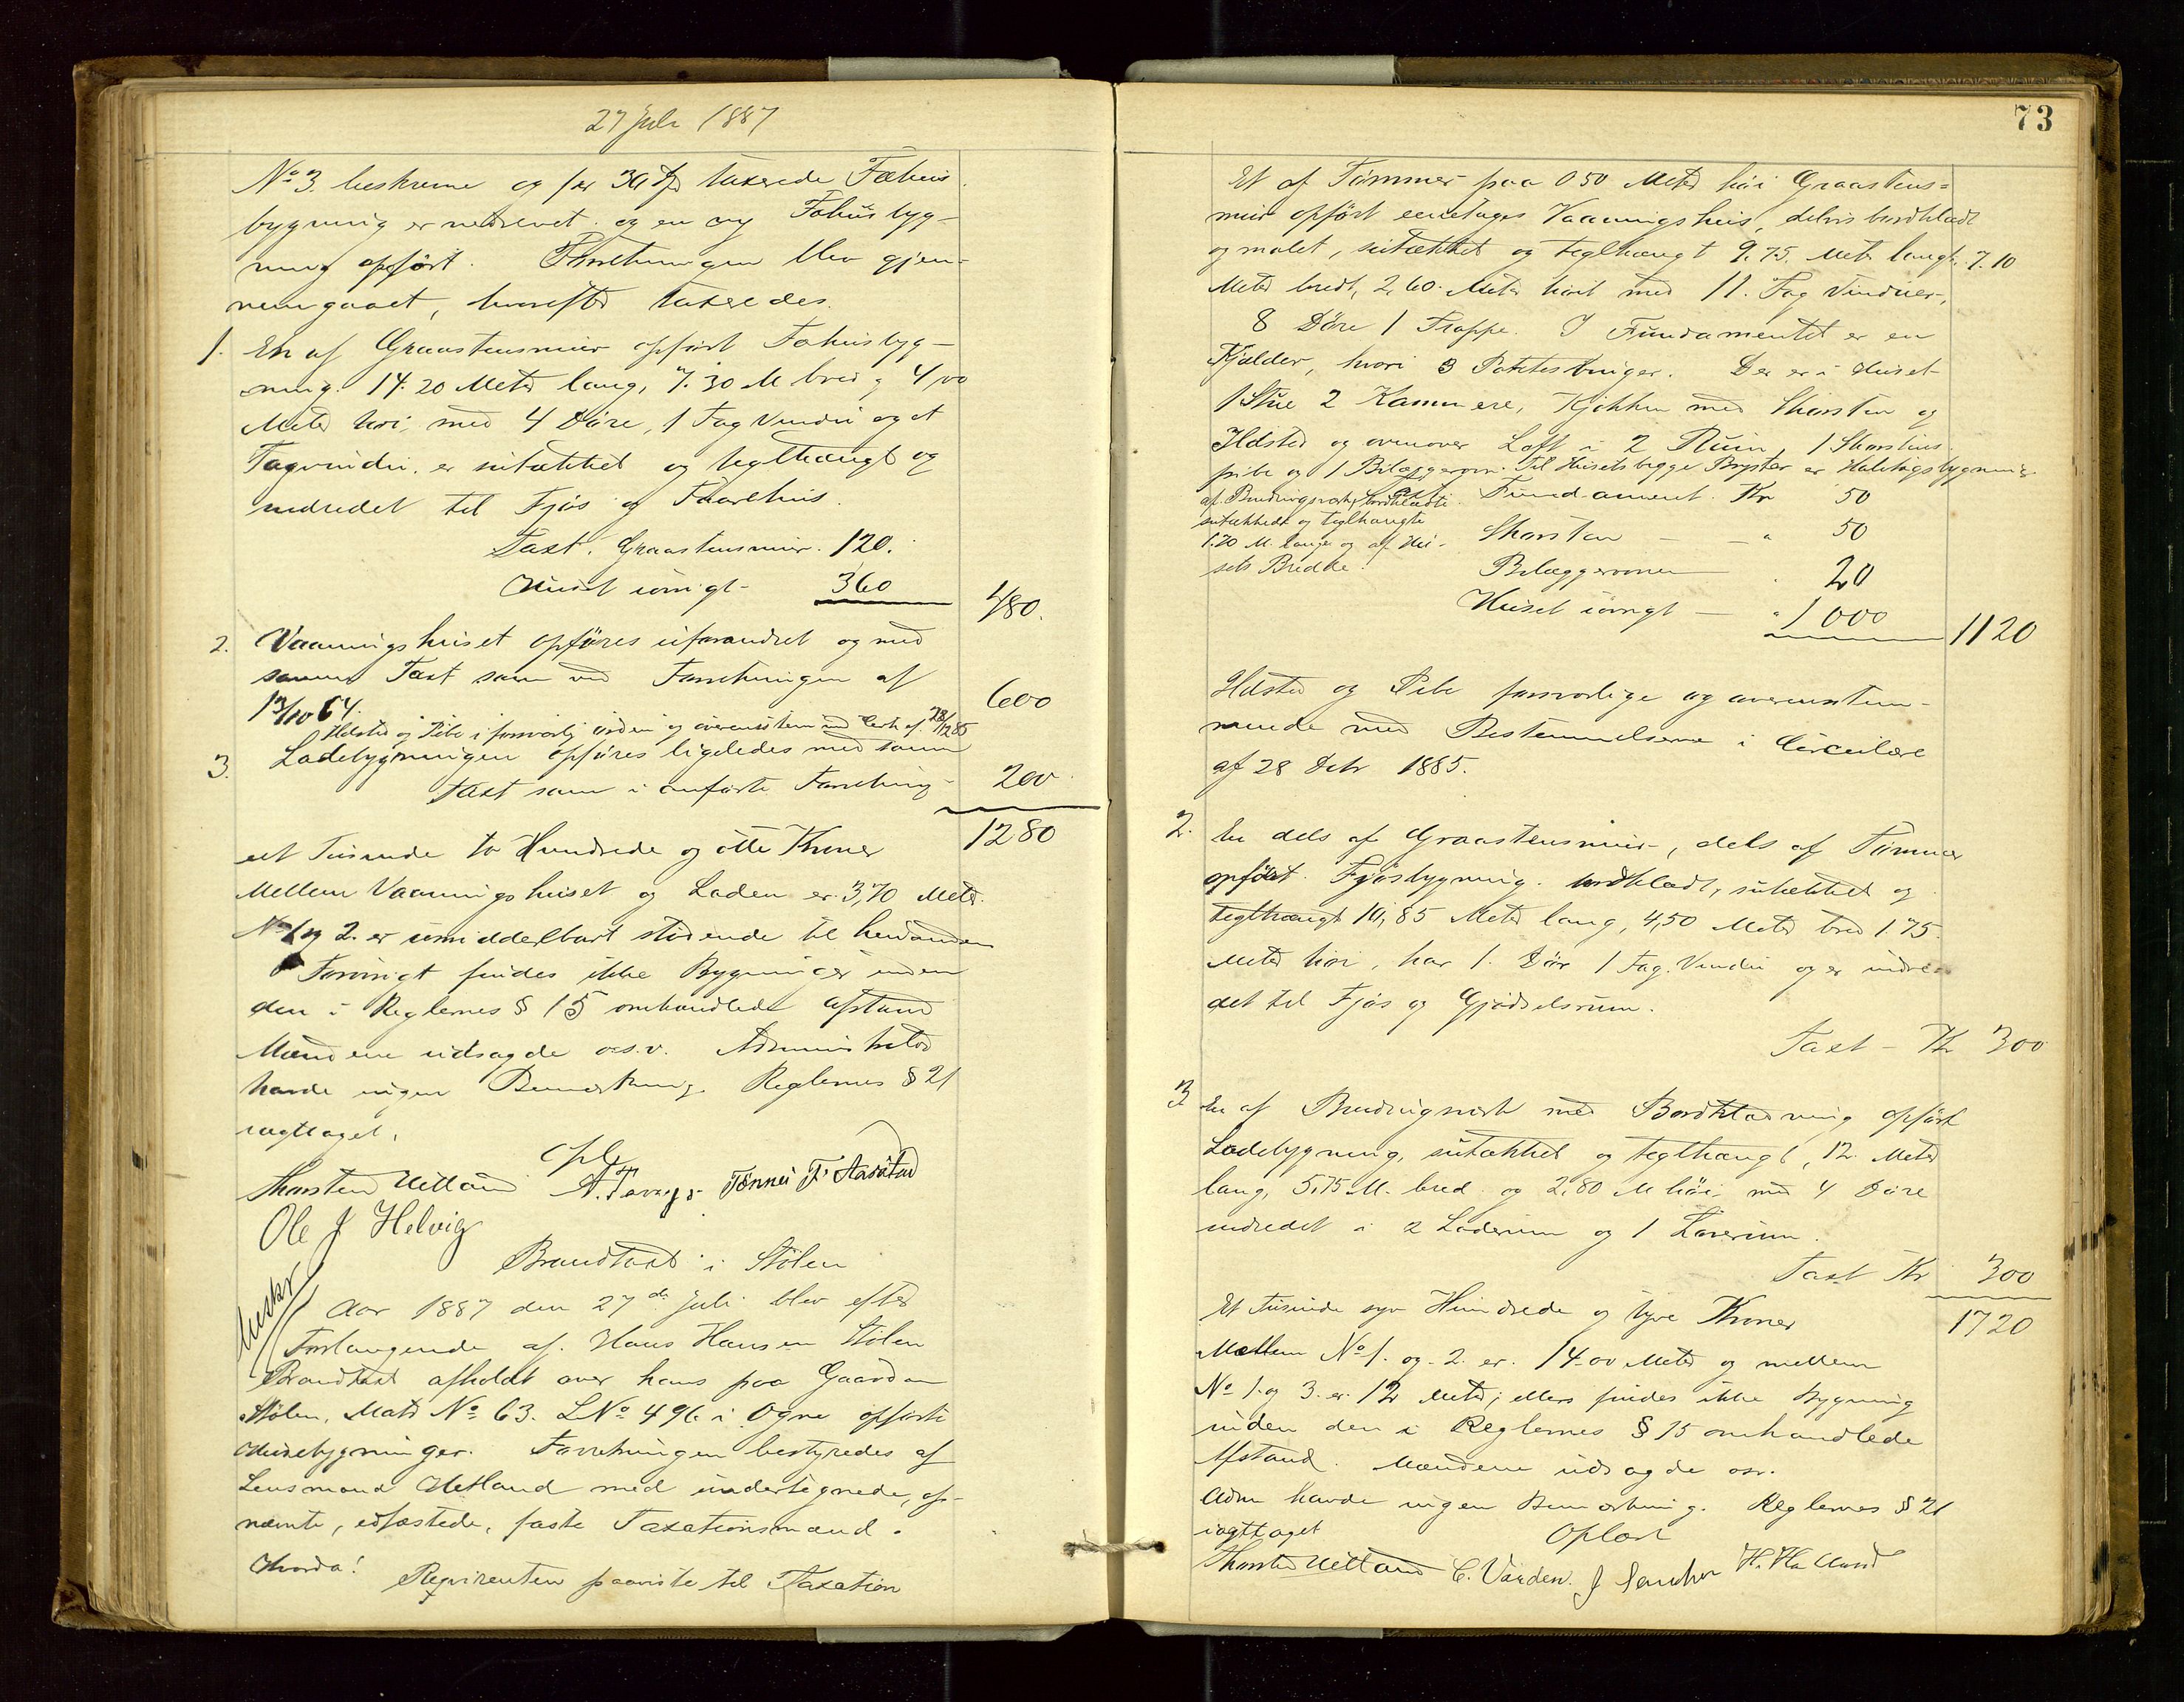 27 Juli 1887
No 3 beskrevne og for taxerede Fæhus
bygning er nedrevet og en ny Fæhusbyg-
ning opført. Forretningen blev gjen-
nemgaaet, hvorefter taxeredes.
1. En af Graastensmur opført Fæhusbyg-
ning. 14.20 Meter lang, 7.30 M bred og 4,00
Meter høi, med 4 Døre, 1 Fag Vindu og et
Tagvindu, er sutækket og teglhængt og
indredet til Fjøs og Faarehus.
Taxt. Graastensmur. 120.
Huset iøvrigt 360
480.
2. Vaaningshuset opføres uforandret og med
samme Taxt som ved Forretningen af
13/10 64. 600
Ildsted og Pibe i forsvarlig orden og overensstem med Cirk af 28/12 85
3. Ladebygningen opføres ligeledes med samme
Taxt som i anførte Forretning 200
1280
eet Tusinde to Hundrede og otti Kroner
Mellem Vaaningshuset og Laden er 3,70 Meter.
No 1 og 2. er umiddelbart stødende til hinanden
Forøvrigt findes ikke Bygninger inden
den i Reglernes § 15 omhandlede afstand
Mændene udsagde o.s.v. Administrator
havde ingen Bemærkning. Reglernes § 21
iagttaget.
Opl
Thorsten Uetland A. Tønnes F. Aasstad
Ole J Helvig
Brandtaxt i Stølen
Udskr
Aar 1887 den 27de Juli blev efter
Forlangende af Hans Hansen Stølen
Brandtaxt afholdt over hans paa Gaarden
Stølen, Matr No 63. LNo 496 i Ogne opførte
Husebygninger. Forretningen bestyredes af
Lensmand Uetland med undertegnede, op-
nævnte, edfæstede, faste Taxationsmænd.
Hvorda!
Reqvirenten paaviste til Taxation
73
Et af Tømmer paa 0 50 Meter høi Graastens-
mur opført eenetages Vaaningshus, delvis bordklædt
og malet, sutækket og teglhængt 9.75 Meter langt, 7.10
Meter bredt, 2,60 Meter høit med 11. Fag Vinduer,
8 Døre 1 Trappe. I Fundamentet er en
Kjælder, hvori 3 Potetesbinger. Der er i Huset
1 Stue 2 Kammere, Kjøkken med Skorsten og
Ildsted og ovenover Loft i 2 Rum, 1 Skorstens
pibe og 1 Bilæggerovn. Til Husets begge Bryster er Halvtagsbygning
af Bindingsverk, bordklædte
sutækkede og teglhængte
1.70 M. lange og af Hu-
sets Bredde.
Taxt. Fundament. Kr 50
Skorsten - - " 50
Bilæggerovnen - " 20
Huset iøvrigt - " 1000
1120
Ildsted og Pibe forsvarlige og overenstem-
mende med Bestemmelserne i Circulære
af 28 Debr 1885.
2. En dels af Graastensmur, dels af Tømmer
opført Fjøsbygning. bordklædt, sutækket og
teglhængt 10,85 Meter lang, 4,50 Meter bred 1.75
Meter høi, har 1. Dør 1 Fag Vindu og er indre-
det til Fjøs og Gjødselsrum.
Taxt - Kr 300
3 En af Bindingsverk med Bordklædning opført
Ladebygning, sutækket og teglhængt, 12 Meter
lang, 5.75 M. bred og 2.80 M høi, med 4 Døre
indredet i 2 Laderum og 1 Loverum.
Taxt Kr 300
Et Tusinde syv Hundrede og tyve Kroner 1720
Mellem No 1. og 2. er. 14.00 Meter og mellem
No 1. og 3. er. 12 Meter; ellers findes ikke bygning
inden den i Reglernes § 15 omhandlede
Afstand. Mændene udsagde osv.
Adm havde ingen Bemærkning. Reglernes § 21
iagttaget
Oplæst
Thorsten Uetland C. Varden. J H. Ha Aand